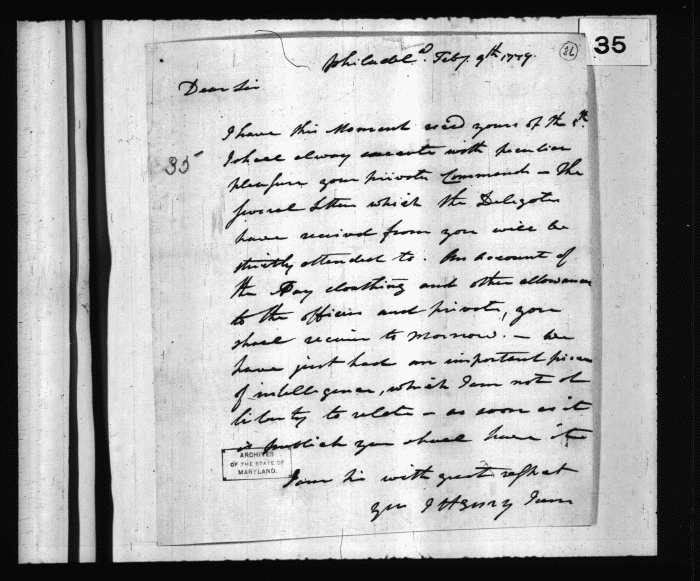 35
26
Philadelᵃ. Feby. 9th 1779.
Dear Sir
35
I have this Moment recd yours of the 5th.
I shall alway execute with peculiar
pleasure your private Commands – The
several Letters which the Delegates
have received from you will be
strictly attended to. An account of
the Pay cloathing and other allowances
to the officers and private, you
shall receive to Morrow. – We
have just had an important piece
of intelligence, which I am not at
liberty to relate – as soon as it
is publick you shall have it
I am Sir with great respect
ARCHIVES
OF THE STATE OF
MARYLAND.